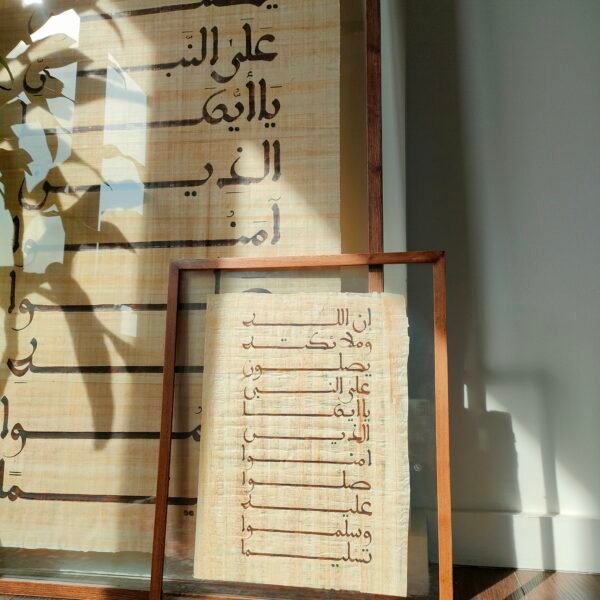 عَلَى النَّبِيِّ
يَا أَيُّهَا
الَّذِين
آمَنُوا
ان الله
وملائكته
يصلون
على النبي
يا ايها
الذين
امنوا
صلوا
عليه
وسلموا
تسليما